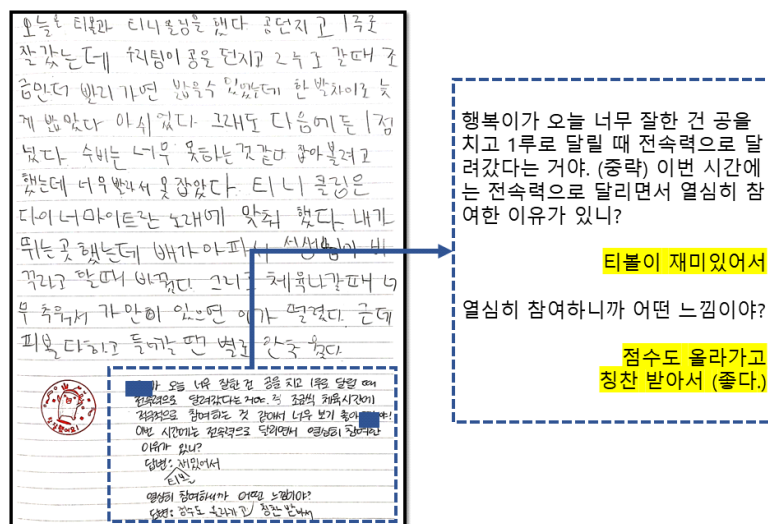 오늘은 티볼과 티니클링을 했다. 공던지고 1루로
잘 갔는데 우리팀이 공을 던지고 2루로 갈때 조
금만더 빨리 가면 밟을수 있었는데 한 발차이로 늦
게 밟았다 아쉬웠다. 그래도 다음에는 1점
넜다. 수비는 너무 못하는것같다 잡아볼려고
했는데 너무빨라서 못잡았다. 티니클링은
다이너마이트란 노래에 맞춰 했다. 내가
뛰는곳 했는데 배가아파서 선생님이 바
꾸라고 할때 바꿨다. 그리고 체육나갈때 너
무 추워서 가만히 있으면 이가 떨렸다. 근데
티볼 다하고 들어갈 땐 별로 안추웠다.
오늘 너무 잘한 건 공을 치고 1루로 달릴 때
전속력으로 달려갔다는 거야. 조금씩 체육시간에
적극적으로 참여하는 것 같아서 너무 보기 좋아
이번 시간에는 전속력으로 달리면서 열심히 참여한
이유가 있니?
답변: 재미있어서
티볼
열심히 참여하니까 어떤 느낌이야?
답변: 점수도 올라가고 칭찬 받아서
행복이가 오늘 너무 잘한 건 공을
치고 1루로 달릴 때 전속력으로 달
려갔다는 거야. (중략) 이번 시간에
는 전속력으로 달리면서 열심히 참
여한 이유가 있니?
티볼이 재미있어서
열심히 참여하니까 어떤 느낌이야?
점수도 올라가고
칭찬 받아서 (좋다.)